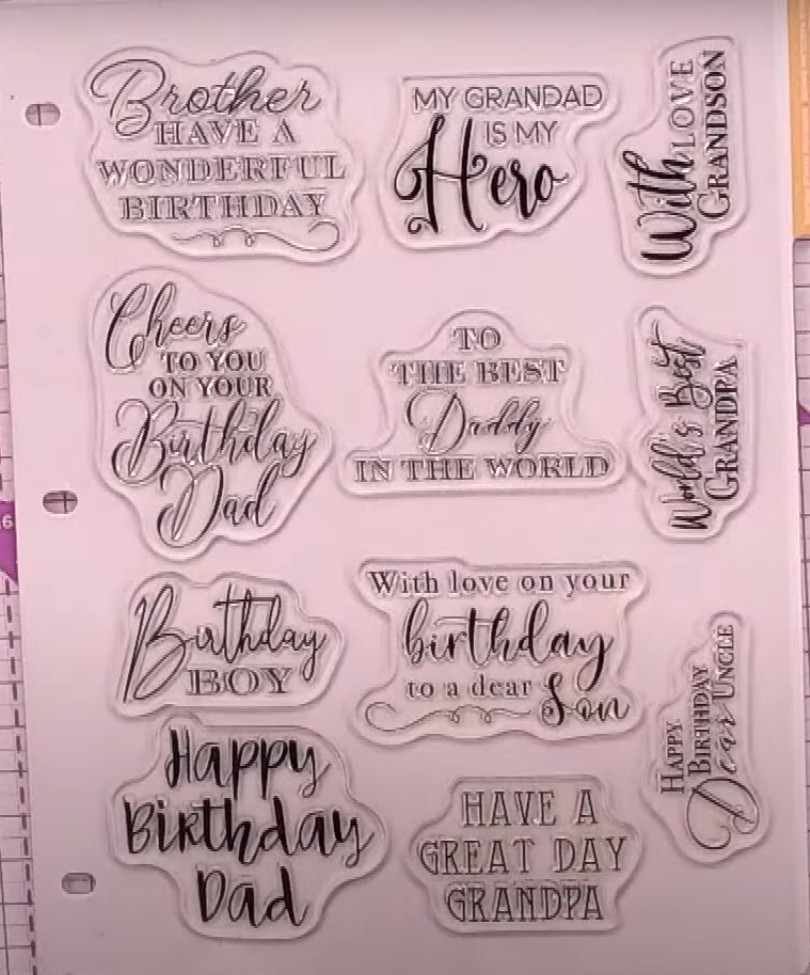 Brother
HAVE A
WONDERFUL
BIRTHDAY
MY GRANDAD
IS MY
Hero
With LOVE
GRANDSON
Cheers
TO YOU
ON YOUR
Birthday
Dad
TO
THE BEST
Daddy
IN THE WORLD
World's Best
GRANDPA
Birthday
BOY
With love on your
birthday
to a dear
Son
HAPPY
BIRTHDAY
Dear UNCLE
Happy
Birthday
Dad
HAVE A
GREAT DAY
GRANDPA
6